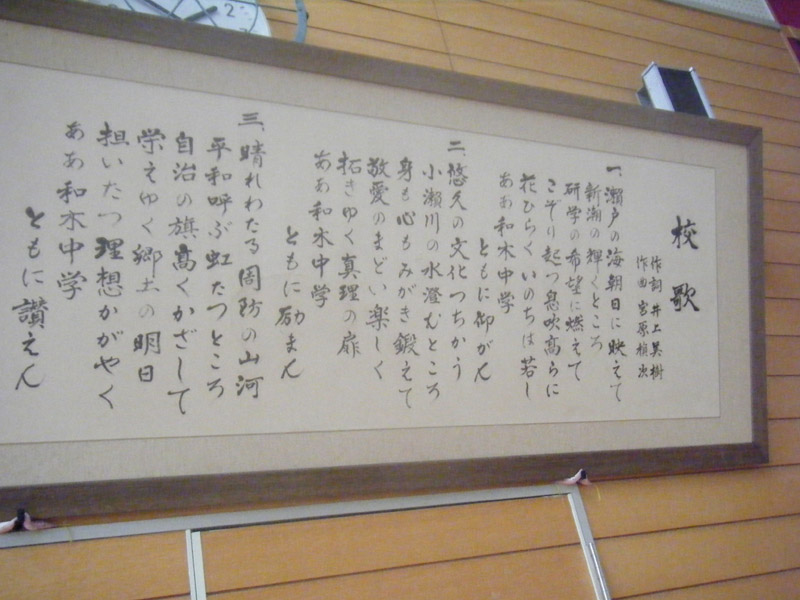 校歌
作詞 井上 樹
作曲 宮原禎次
一、瀬戸の海朝日に映えて
新潮の輝くところ
研学の希望に燃えて
こぞり起つ息吹高らに
花ひらくいのちは若し
ああ和木中学
ともに仰がん
二、悠久の文化つちかう
小瀬川の水澄むところ
身も心もみがき鍛えて
敬愛のまどい楽しく
拓きゆく真理の扉
ああ和木中学
ともに励まん
三、晴れわたる周防の山河
平和呼ぶ虹たつところ
自治の旗高くかざして
栄えゆく郷土の明日
担いたつ理想かがやく
ああ和木中学
ともに讃えん
2